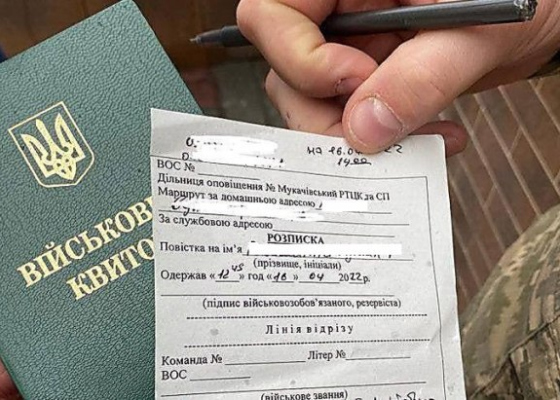 ВІЙСЬКОВ
КВИТО
на 16.0 22
14.00
ВОС №
Дільниця оповіщення № Мукачівський РТЦК та СП
Маршрут за домашньою адресою
За службовою адресою
РОЗПИСКА
Повістка на ім'я
(прізвище, ініціали)
Одержав «12 45» год «16» 04 2022р.
(підпис військовозобов'язаного, резервіста)
Лінія відрізу
Команда № Літер №
ВОС
(військове звання)